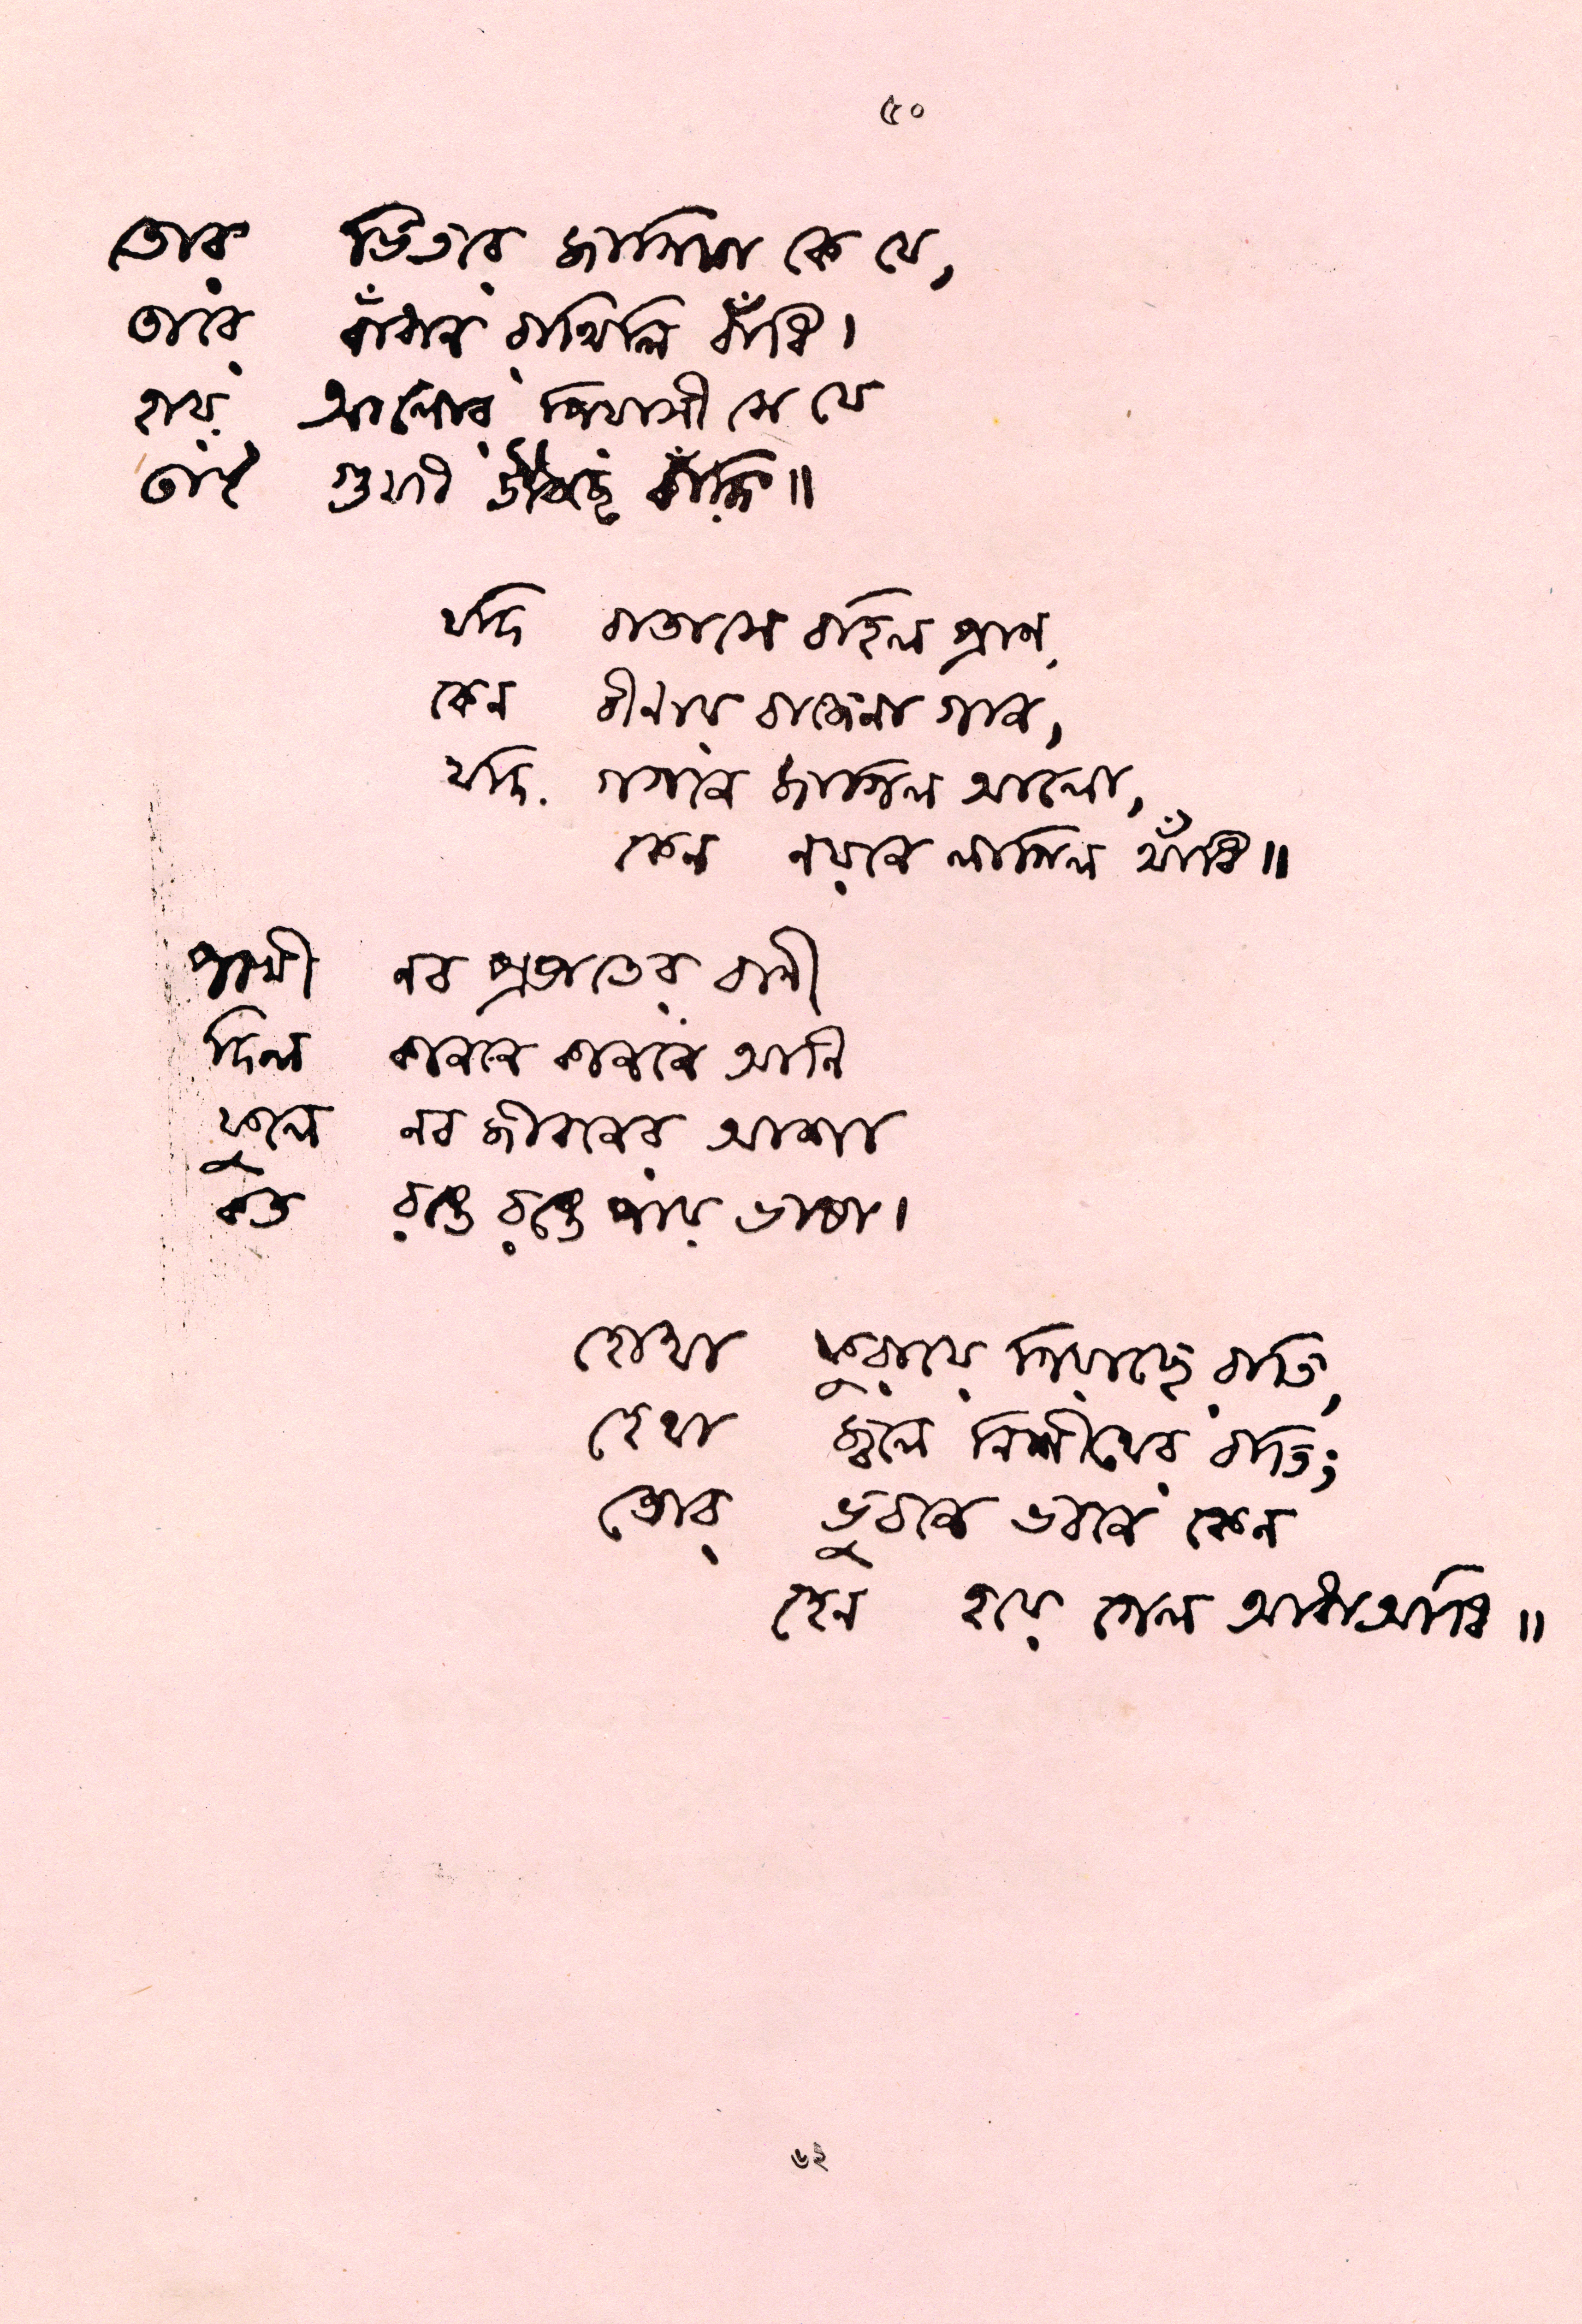 ৫০
তোর ভিতরে জাগিয়া কে যে,
তারে বাঁধনে রাখিলি বাঁধি।
হায় আলোর পিয়াসী সে যে
তাই গুমরি উঠিছে কাঁদি॥
যদি বাতাসে বহিল প্রাণ,
কেন বীণায় বাজেনা গান,
যদি গগনে জাগিল আলো,
কেন নয়নে লাগিল আঁধি॥
পাখী নব প্রভাতের বাণী
দিল কাননে কাননে আনি
ফুলে নব জীবনের আশা
কত রঙে রঙে পায় ভাষা।
হোথা ফুরায়ে গিয়াছে রাতি,
হেথা জ্বলে নিশীথের বাতি;
তোর ভুবনে ভবনে কেন
হেন হয়ে গেল আধাআধি॥
৬২